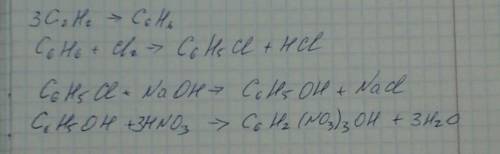 3C₂H₂ → C₆H₆
C₆H₆ + Cl₂ → C₆H₅Cl + HCl
C₆H₅Cl + NaOH → C₆H₅OH + NaCl
C₆H₅OH + 3HNO₃ → C₆H₂(NO₃)₃OH + 3H₂O